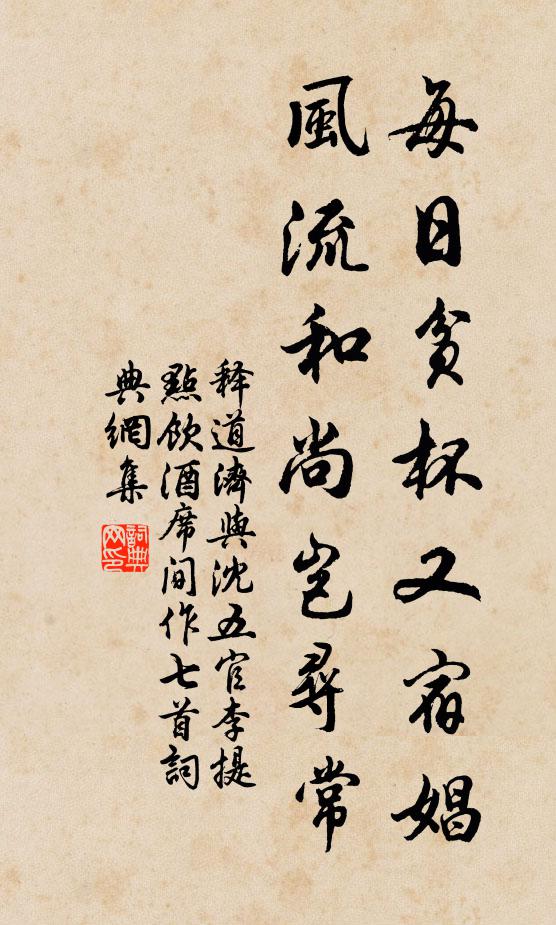 每日貪杯又宿娼
風流和尚豈尋常
释道濟與沈五官李提
點飲酒席间作七首詞
典網集
詞典網印